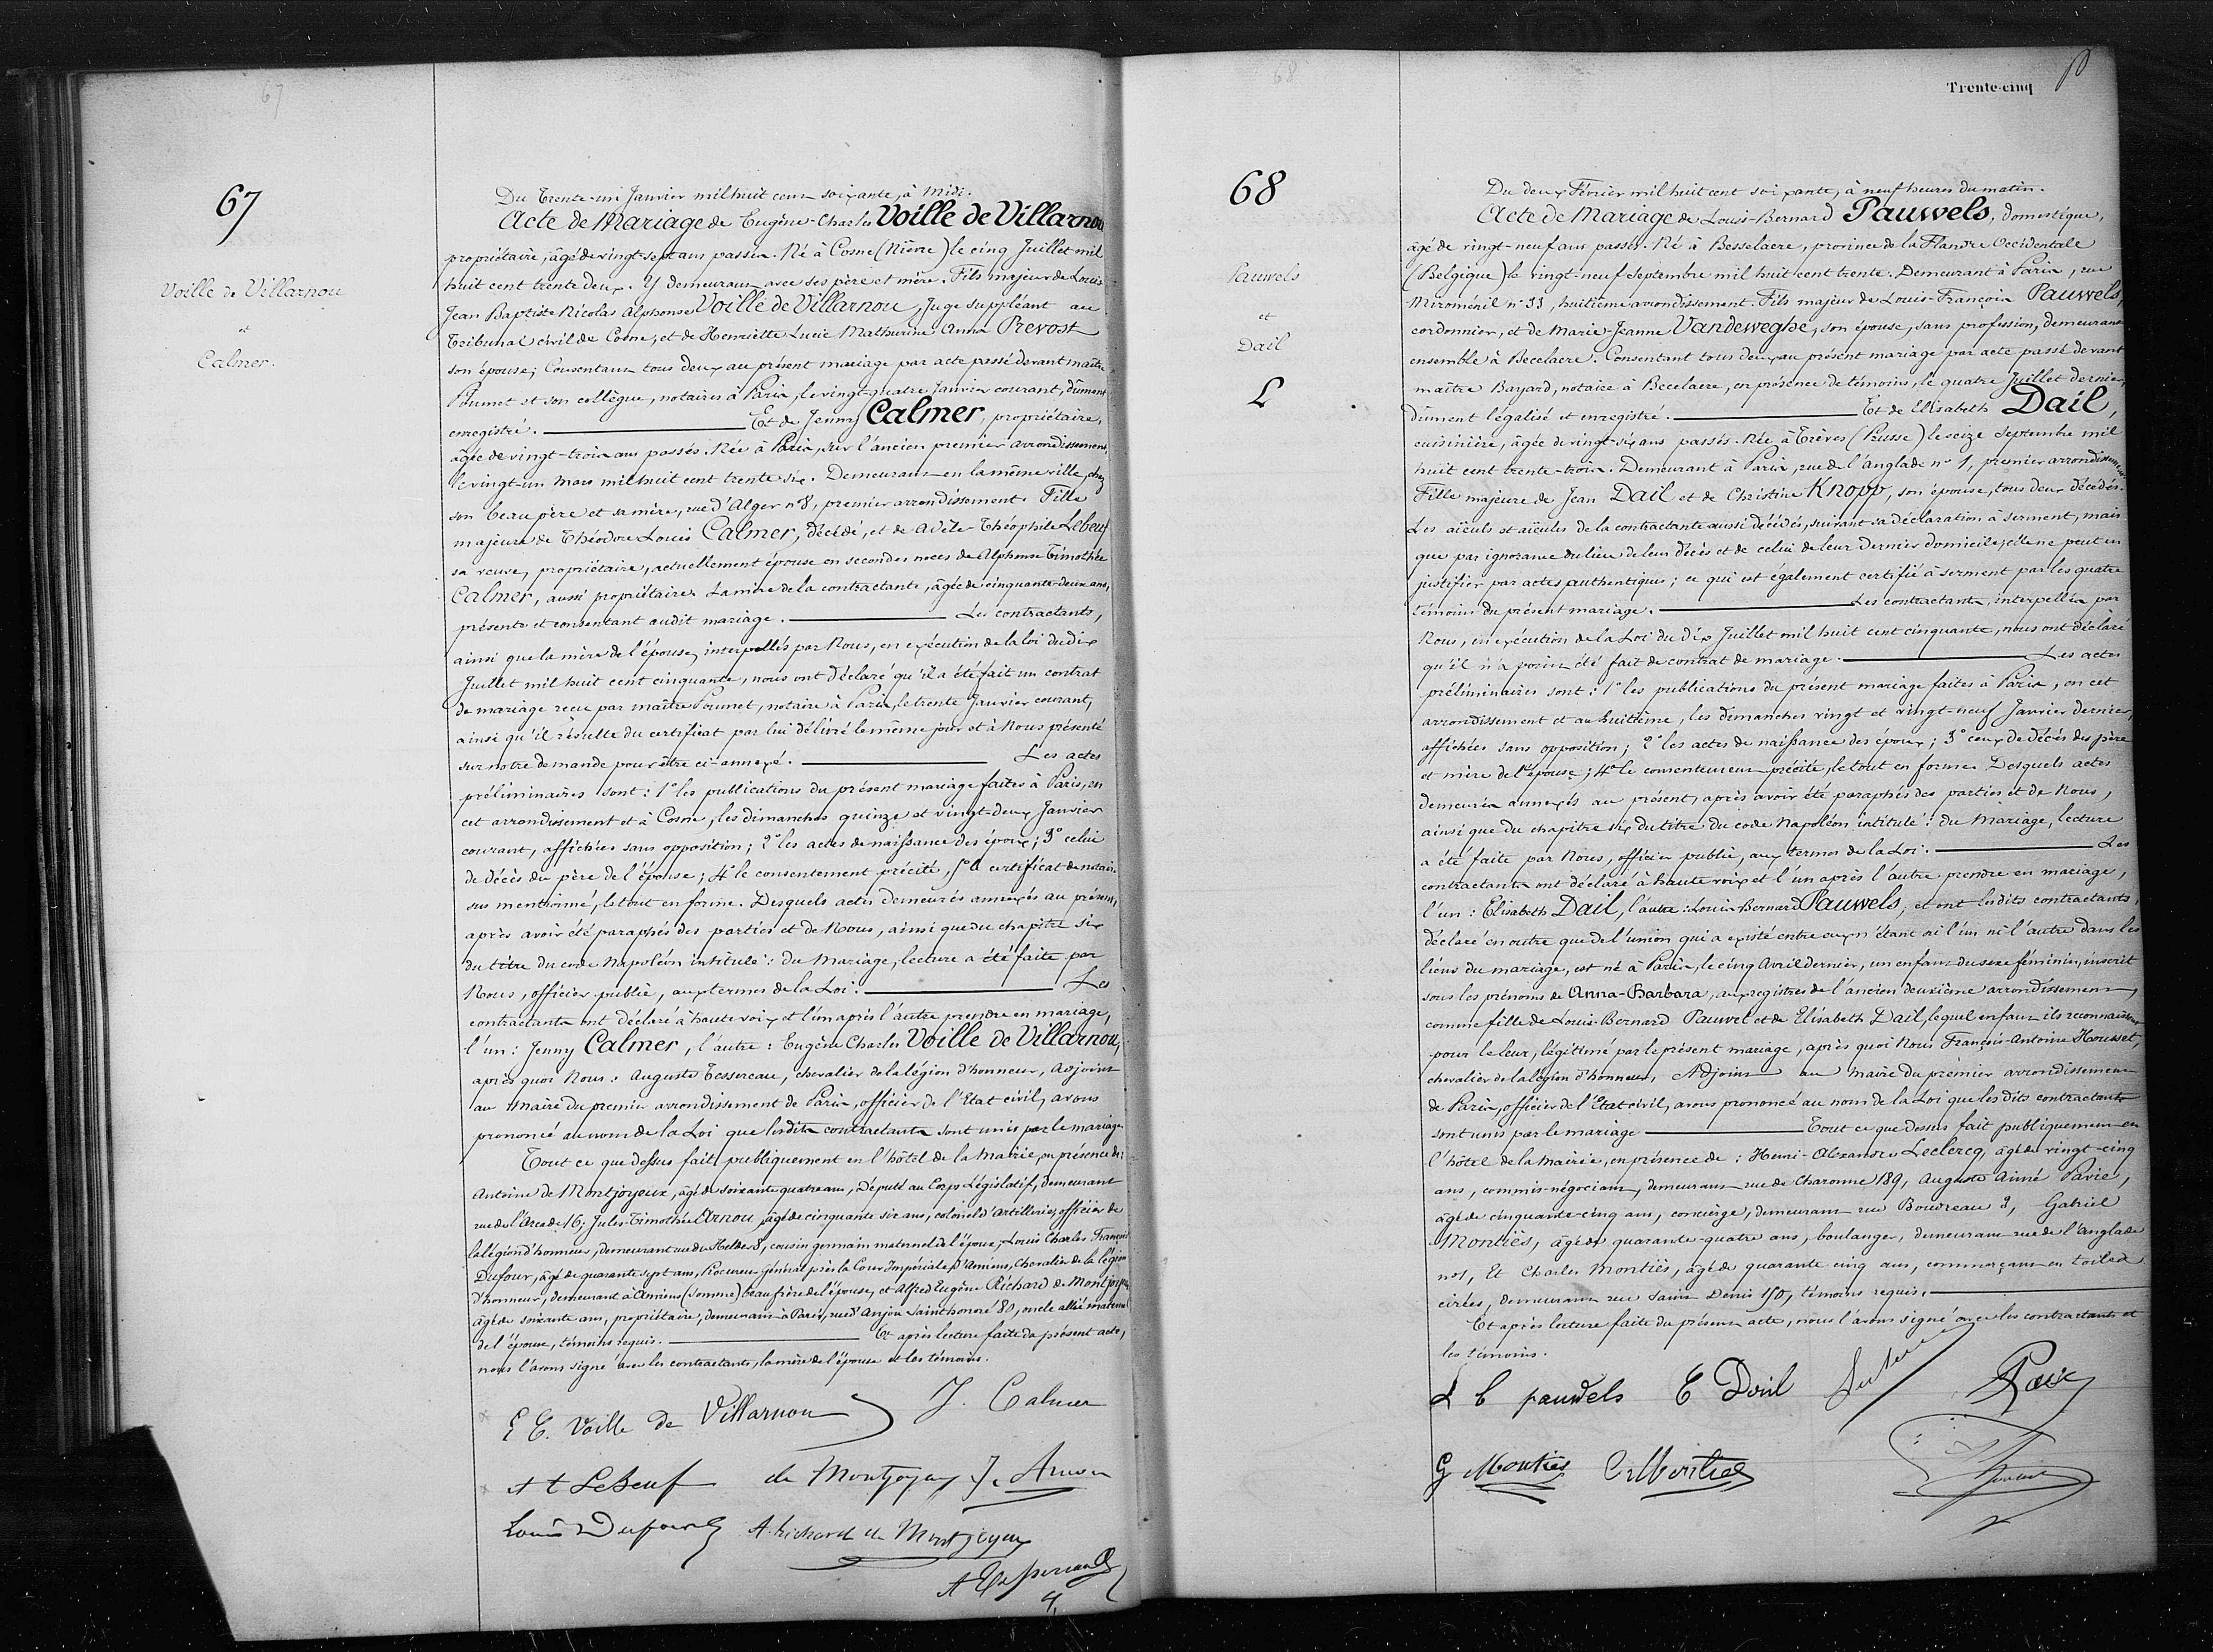 67
67
Voille de Villarnou
et
Calmer.
Du Trente-un Janvier mil huit cent soixante, à Midi.
Acte de Mariage de Eugène-Charles Voille de Villarnou
propriétaire, âgé de vingt-sept ans passés. Né à Cosne (Nièvre) le cinq Juillet mil
huit cent trente deux. Y demeurant avec ses père et mère. Fils majeur de Louis
Jean Baptiste Nicolas Alphonse Voille de Villarnou, Juge suppléant au
Tribunal civil de Cosne, et de Henriette Lucie Mathurine Anna Prevost
son épouse; Consentant tous deux au présent mariage par acte passé devant maître
Poumet et son collègue, notaires à Paris, le vingt-quatre Janvier courant, dûment
enregistré. Et de Jenny Calmer, propriétaire,
âgée de vingt-trois ans passés. Née à Paris, sur l'ancien premier arrondissement,
le vingt-un Mars mil huit cent trente six. Demeurant en la même ville, chez
son beau père et sa mère, rue d'Alger n° 8, premier arrondissement. Fille
majeure de Théodore Louis Calmer, décédé, et de Adèle-Théophile Lebeuf
sa veuve, propriétaire, actuellement épouse en secondes noces de Alphonse Timothée
Calmer, aussi propriétaire. La mère de la contractante, âgée de cinquante-deux ans,
présente et consentant audit mariage. Les contractants,
ainsi que la mère de l'épouse, interpellés par Nous, en exécution de la loi du dix
Juillet mil huit cent cinquante, nous ont déclaré qu'il a été fait un contrat
de mariage reçu par maître Poumet, notaire à Paris, le trente Janvier courant,
ainsi qu'il résulte du certificat par lui délivré le même jour et à Nous présenté
sur notre demande pour être ci-annexé. Les actes
préliminaires sont: 1° les publications du présent mariage faites à Paris, en
cet arrondissement et à Cosne, les dimanches quinze et vingt-deux Janvier
courant, affichées sans opposition; 2° les actes de naissance des époux; 3° celui
de décès du père de l'épouse; 4° le consentement précité, 5° le certificat de notaire
sus mentionné, le tout en forme. Desquels actes demeurés annexés au présent,
après avoir été paraphés des parties et de Nous, ainsi que du chapitre six
du titre du code Napoléon intitulé: du Mariage, lecture a été faite par
Nous, officier public, aux termes de la Loi. Les
contractants ont déclaré à haute voix et l'un après l'autre prendre en mariage,
l'un: Jenny Calmer, l'autre: Eugène Charles Voille de Villarnou,
après quoi Nous: Auguste Tessereau, chevalier de la légion d'honneur, Adjoint
au Maire du premier arrondissement de Paris, officier de l'Etat civil, avons
prononcé au nom de la Loi que lesdits contractants sont unis par le mariage
Tout ce que dessus fait publiquement en l'hôtel de la Mairie, en présence de:
Antoine de Montjoyeux, âgé de soixante quatre ans, Député au Corps Législatif, demeurant
rue de l'Arcade 16; Jules-Timothée Arnou, âgé de cinquante six ans, colonel d'artillerie, officier de
la légion d'honneur, demeurant rue du Helder 8, cousin germain maternel de l'époux; Louis Charles François
Dufour, âgé de quarante sept ans, Procureur Général près la Cour Impériale d'Amiens, Chevalier de la légion
d'honneur, demeurant à Amiens (Somme) beau frère de l'épouse, et Alfred Eugène Richard de Montjoyeux
âgé de soixante ans, propriétaire, demeurant à Paris, rue d'Anjou Saint honoré 80, oncle allié maternel
de l'épouse, témoins requis. Et après lecture faite du présent acte,
nous l'avons signé avec les contractants, la mère de l'épouse et les témoins.
E C. Voille de Villarnou J. Calmer
A t LeBeuf de Montjoyeux J. Arnou
Louis Dufour A. Richard de Montjoyeux
68
Trente-cinq
68
Pauwels
et
Dail
L
Du deux Février mil huit cent soixante, à neuf heures du matin.
Acte de Mariage de Louis-Bernard Pauwels, domestique,
âgé de vingt-neuf ans passés. Né à Besselaere, province de la Flandre Occidentale
(Belgique) le vingt-neuf Septembre mil huit cent trente. Demeurant à Paris, rue
Miroménil n° 33, huitième arrondissement. Fils majeur de Louis-François Pauwels,
cordonnier, et de Marie-Jeanne Vandeweghe, son épouse, sans profession, demeurant
ensemble à Becelaere. Consentant tous deux au présent mariage par acte passé devant
maître Bayard, notaire à Becelaere, en présence de témoins, le quatre Juillet dernier,
dûment légalisé et enregistré. Et de Elisabeth Dail,
cuisinière, âgée de vingt-six ans passés. Née à Trèves (Prusse) le seize Septembre mil
huit cent trente-trois. Demeurant à Paris, rue de l'anglade n° 1, premier arrondissement
Fille majeure de Jean Dail et de Christine Knopp, son épouse, tous deux décédés.
Les aïeuls et aïeules de la contractante aussi décédés, suivant sa déclaration à serment, mais
que par ignorance du lieu de leur décès et de celui de leur dernier domicile, elle ne peut en
justifier par actes authentiques; ce qui est également certifié à serment par les quatre
témoins du présent mariage. Les contractants, interpellés par
Nous, en exécution de la Loi du dix Juillet mil huit cent cinquante, nous ont déclaré
qu'il n'a point été fait de contrat de mariage. Les actes
préliminaires sont: 1° les publications du présent mariage faites à Paris, en cet
arrondissement et au huitième, les dimanches vingt et vingt-neuf Janvier dernier,
affichées sans opposition; 2° les actes de naissance des époux; 3° ceux de décès des père
et mère de l'épouse; 4° le consentement précité, le tout en forme. Desquels actes
demeurés annexés au présent, après avoir été paraphés des parties et de Nous,
ainsi que du chapitre six du titre du code Napoléon intitulé: du Mariage, lecture
a été faite par Nous, officier public, aux termes de la Loi. Les
contractants ont déclaré à haute voix et l'un après l'autre prendre en mariage,
l'un: Elisabeth Dail, l'autre: Louis-Bernard Pauwels, et ont lesdits contractants,
déclaré en outre que de l'union qui a existé entre eux, n'étant ni l'un ni l'autre dans les
liens du mariage, est né à Paris, le cinq Avril dernier, un enfant du sexe féminin, inscrit
sous les prénoms de Anna-Barbara, aux registres de l'ancien deuxième arrondissement,
comme fille de Louis-Bernard Pauwel et de Elisabeth Dail, lequel enfant ils reconnaissent
pour le leur, légitimé par le présent mariage, après quoi Nous François-Antoine Housset,
chevalier de la légion d'honneur, Adjoint au Maire du premier arrondissement
de Paris, officier de l'Etat civil, avons prononcé au nom de la Loi que les dits contractants
sont unis par le mariage Tout ce que dessus fait publiquement en
l'hôtel de la mairie, en présence de: Henri-Alexandre Leclercq, âgé de vingt-cinq
ans, commis-négociant, demeurant rue de Charonne 189, Auguste Aimé Pavie,
âgé de cinquante-cinq ans, concierge, demeurant rue Boudreau 3, Gabriel
Montiès, âgé de quarante-quatre ans, boulanger, demeurant rue de l'anglade
n° 1, Et Charles Montiès, âgé de quarante cinq ans, commerçant en toiles
cirées, demeurant rue Saint Denis 150, témoins requis.
Et après lecture faite du présent acte, nous l'avons signé avec les contractants et
les témoins.
L b pauwels E Dail
G Montiès C Montiès